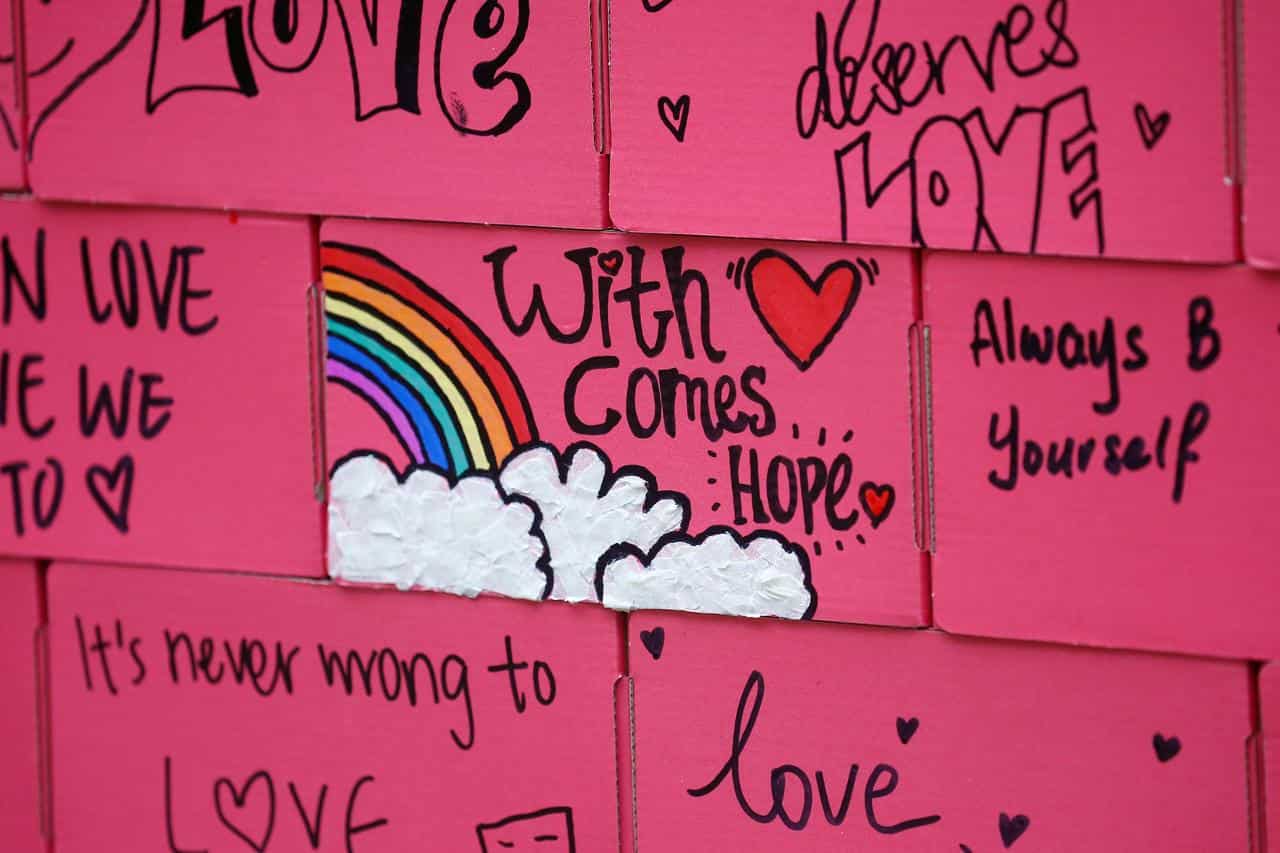 LOVE
deserves
LOVE
N LOVE
WE
TO
With
Comes
HOPE
Always B
Yourself
It's never wrong to
LOVE
love